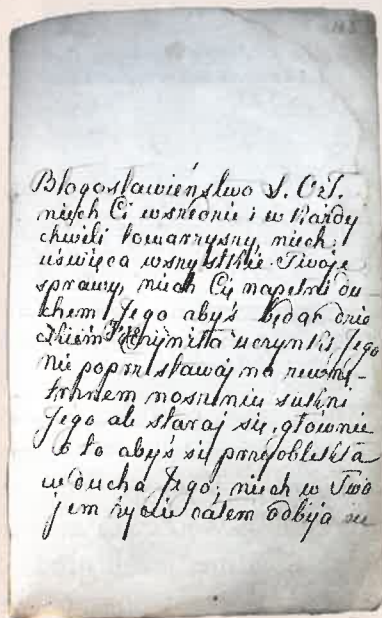 Błogosławieństwo S. O.
niech Ci wszędzie i w każdy
chwili towarzyszy, niech
uświęca wszystkie Twoje
sprawy, niech Cię napełni du
chem Jego abyś będąc dzie
czyniła uczynki Jego
nie poprzestawaj na zewnę-
trznem noszeniu sukni
Jego ale staraj się głównie
o to abyś się przyoblekła
w ducha Jego; niech w Two
jem życiu całem odbija się